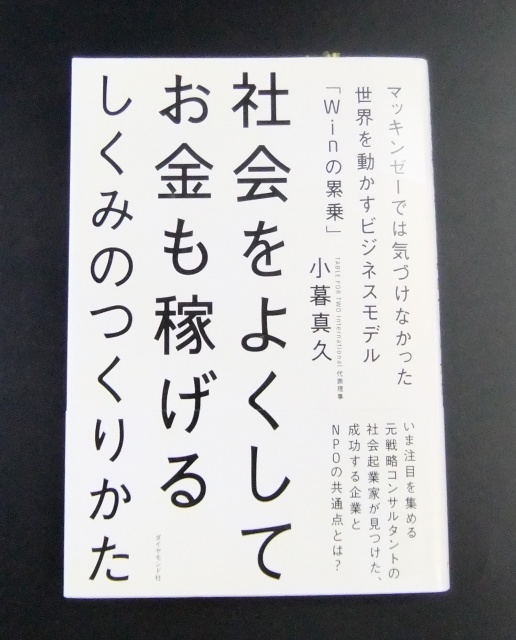 マッキンゼーでは気づけなかった
世界を動かすビジネスモデル
「Winの累乗」
TABLE FOR TWO International 代表理事
小暮真久
社会をよくして
お金も稼げる
しくみのつくりかた
いま注目を集める
元戦略コンサルタントの
社会起業家が見つけた、
成功する企業と
NPOの共通点とは?
ダイヤモンド社